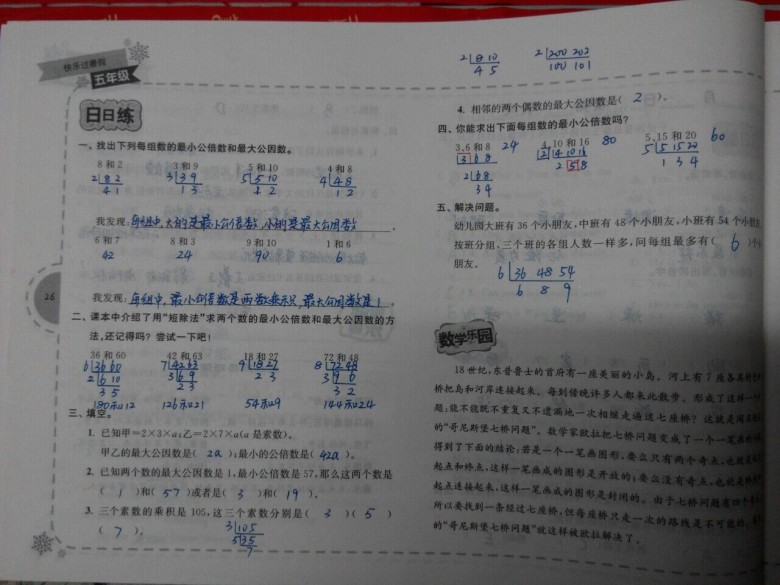 快乐过暑假
五年级
日日练
一、找出下列每组数的最小公倍数和最大公因数。
8和2 3和9 5和10 4和8
2 8 2 3 3 9 5 5 10 4 4 8
4 1 1 3 1 2 1 2
我发现:每组中,大的是最小公倍数,小的是最大公因数.
6和7 8和3 9和10 1和6
42 24 90 6
我发现:每组中,最小公倍数是两数乘积,最大公因数是1.
26
二、课本中介绍了用“短除法”求两个数的最小公倍数和最大公因数的方
法,还记得吗?尝试一下吧!
36和60 42和63 18和27 72和48
6 36 60 7 42 63 9 18 27 8 72 48
2 6 10 3 6 9 2 3 3 9 6
3 5 2 3 3 2
180和12 126和21 54和9 144和24
三、填空。
1. 已知甲=2×3×a;乙=2×7×a(a是素数)。
甲乙的最大公因数是( 2a );最小的公倍数是( 42a )。
2. 已知两个数的最大公因数是1,最小公倍数是57,那么这两个数是
( 1 )和( 57 )或者是( 3 )和( 19 )。
3. 三个素数的乘积是105,这三个素数分别是( 3 )( 5 )
( 7 )。
3 105
5 35
7
2 8 10 2 200 202
4 5 100 101
4. 相邻的两个偶数的最大公因数是( 2 )。
四、你能求出下面每组数的最小公倍数吗?
3,6和8 24 4,10和16 80 5,15和20 60
3 3 6 8 2 4 10 16 5 5 15 20
2 1 6 8 2 5 8 1 3 4
3 4
五、解决问题。
幼儿园大班有36个小朋友,中班有48个小朋友,小班有54个小朋友
按班分组,三个班的各组人数一样多,问每组最多有( 6 )个小
朋友。
6 36 48 54
6 8 9
数学乐园
18世纪,东普鲁士的首府有一座美丽的小岛。河上有7座各具特色的
桥把岛和河岸连接起来。每到傍晚许多人都来此散步。形成了这样一个问
题:能不能既不重复又不遗漏地一次相继走遍这七座桥?这就是闻名
的“哥尼斯堡七桥问题”。数学家欧拉把七桥问题变成了一个一笔画
得到了下面的结论:若是一个一笔画图形,要么只有两个奇点,也就是
起点和终点,这样一笔画成的图形是开放的;要么没有奇点,也就是
起点连接起来,这样一笔画成的图形是封闭的。由于七桥问题有四个奇
所以要找到一条经过七座桥,但每座桥只走一次的路线是不可能的。
的“哥尼斯堡七桥问题”就这样被欧拉解决了。